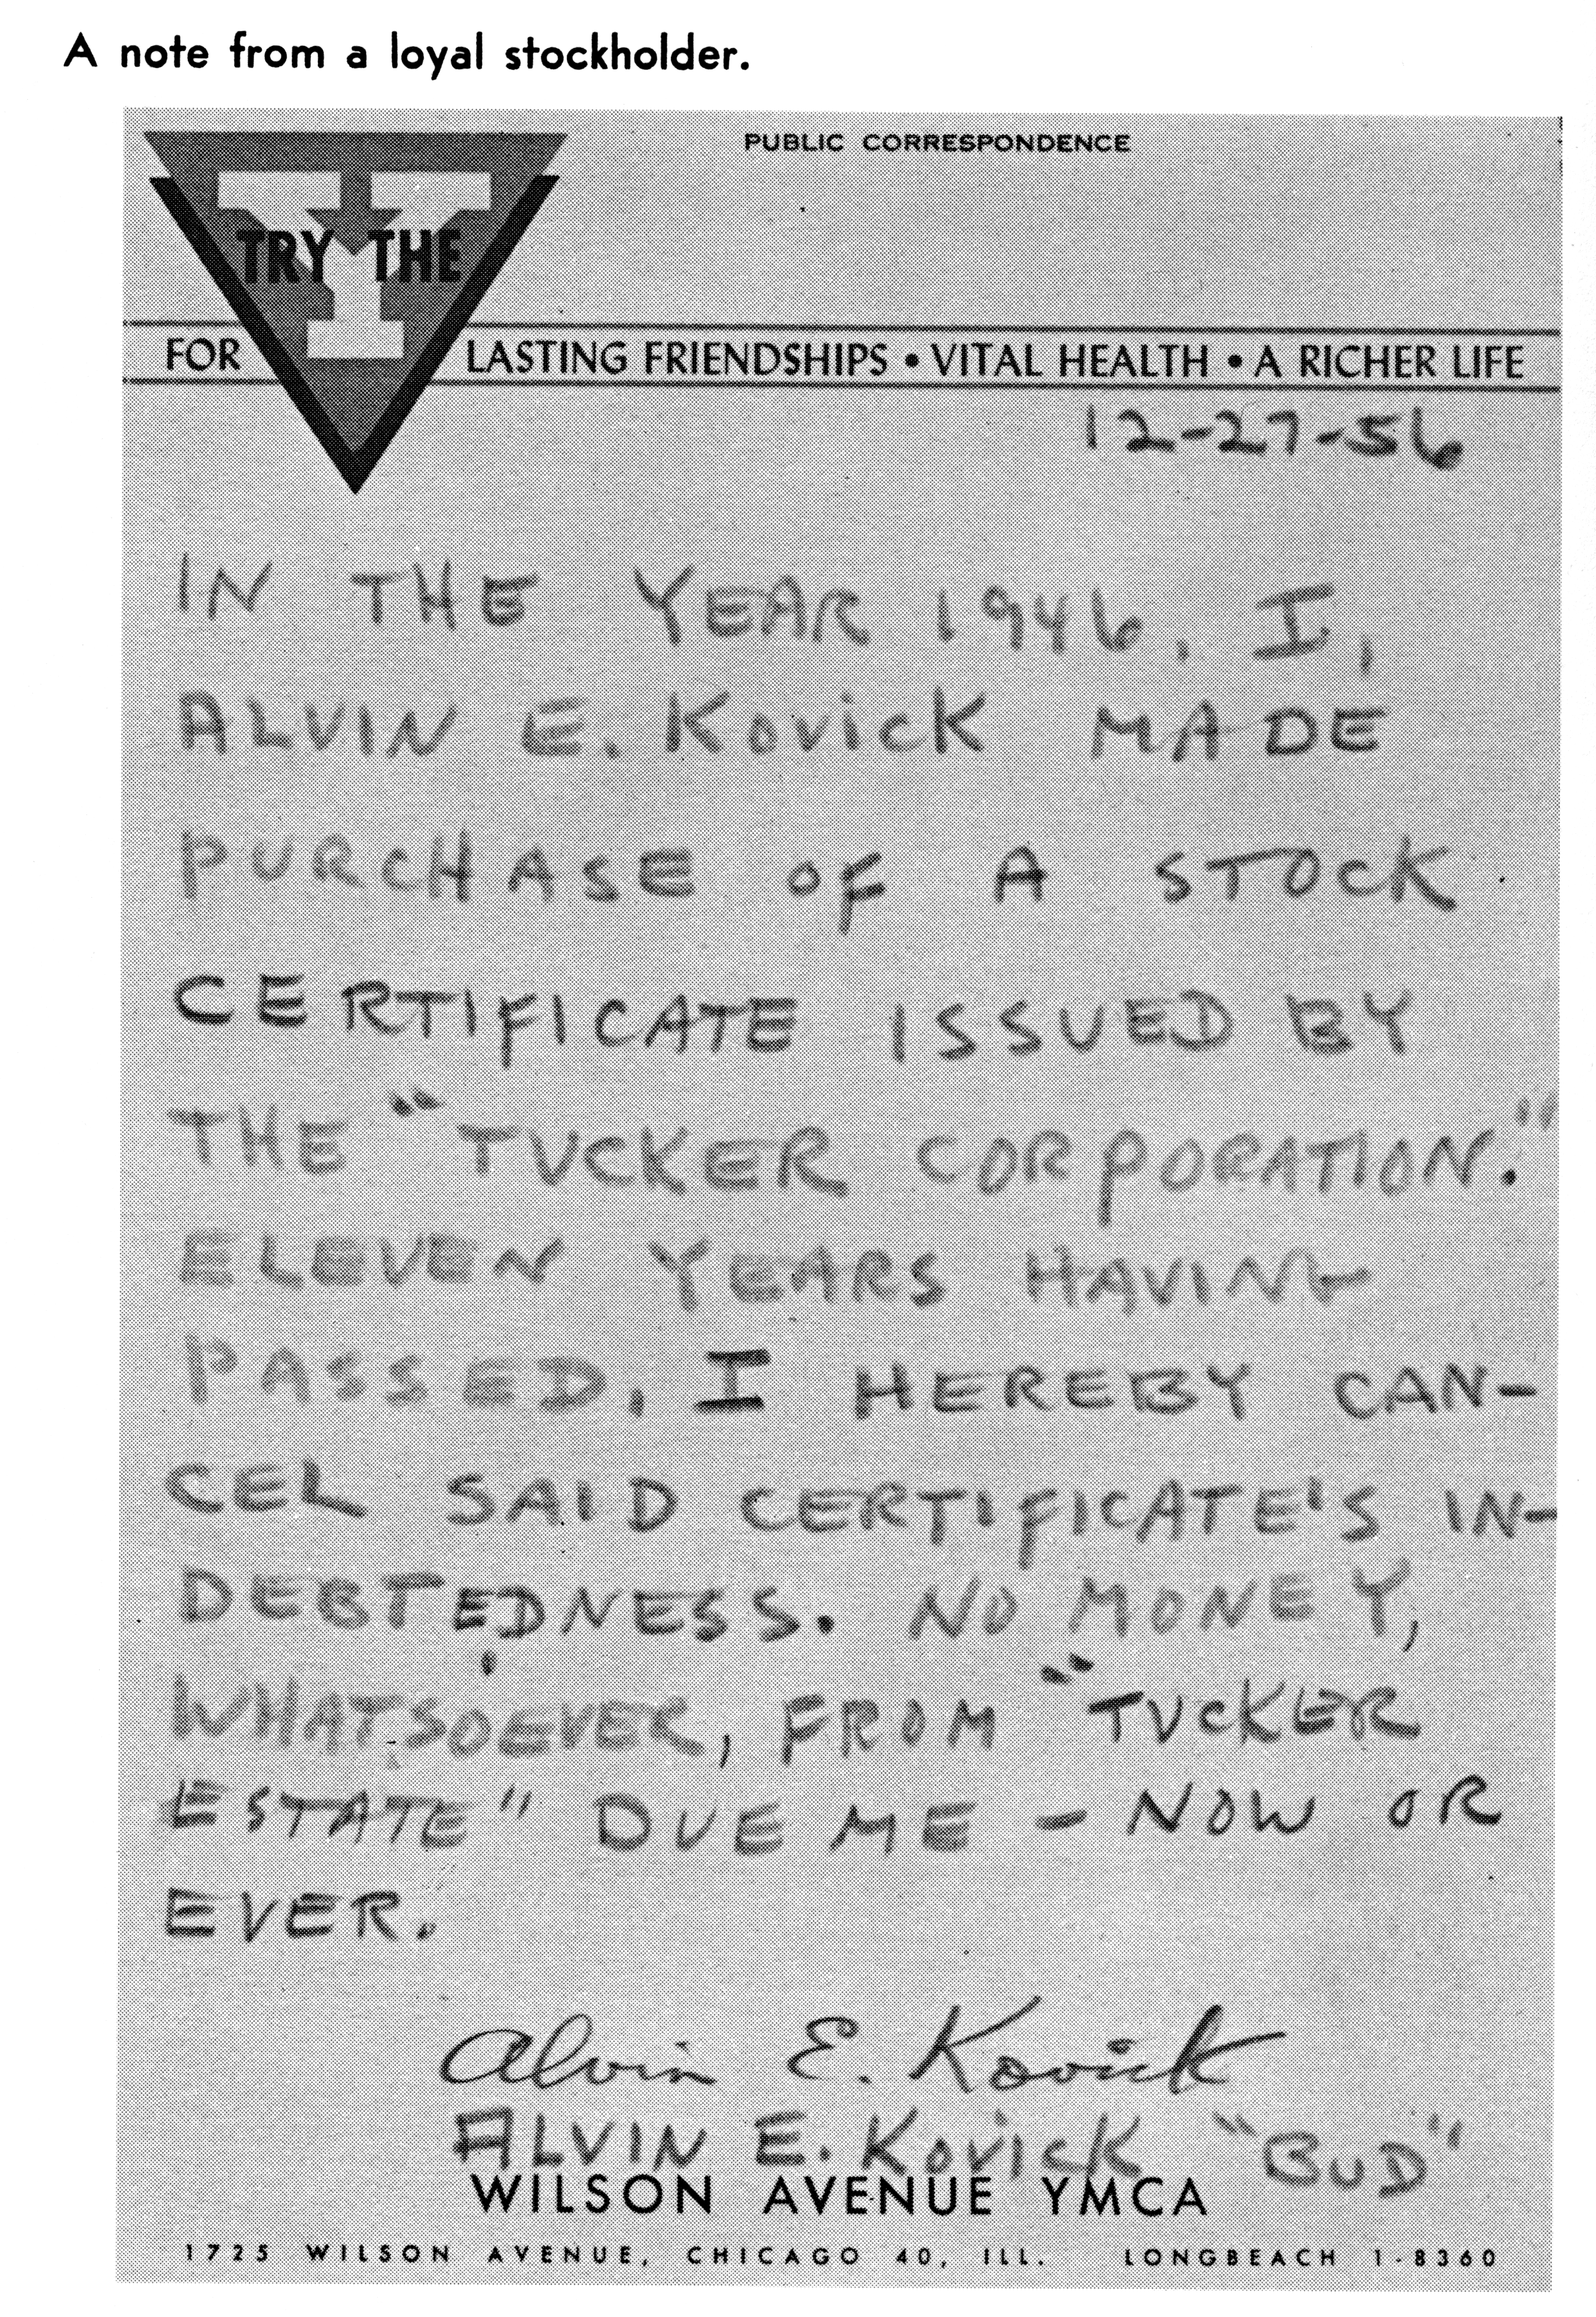 A note from a loyal stockholder.
PUBLIC CORRESPONDENCE
Y
TRY THE
FOR LASTING FRIENDSHIPS • VITAL HEALTH • A RICHER LIFE
12-27-56
IN THE YEAR 1946, I,
ALVIN E. KOVICK MADE
PURCHASE OF A STOCK
CERTIFICATE ISSUED BY
THE "TUCKER CORPORATION."
ELEVEN YEARS HAVING
PASSED, I HEREBY CAN-
CEL SAID CERTIFICATE'S IN-
DEBTEDNESS. NO MONEY,
WHATSOEVER, FROM "TUCKER
ESTATE" DUE ME - NOW OR
EVER.
Alvin E. Kovick
ALVIN E. KOVICK "BUD"
WILSON AVENUE YMCA
1725 WILSON AVENUE, CHICAGO 40, ILL. LONGBEACH 1-8360